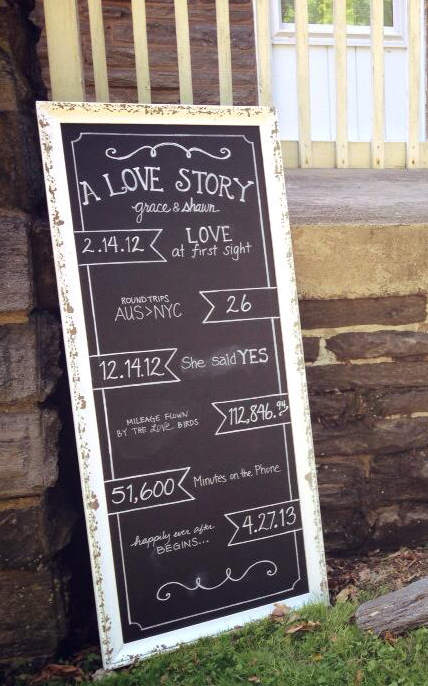 A LOVE STORY
grace & shawn
2.14.12
LOVE
at first sight
ROUNDTRIPS
AUS>NYC
26
12.14.12
She said YES
MILEAGE FLOWN
BY THE LOVE BIRDS
112,846.94
51,600
Minutes on the Phone
happily ever after
BEGINS...
4.27.13